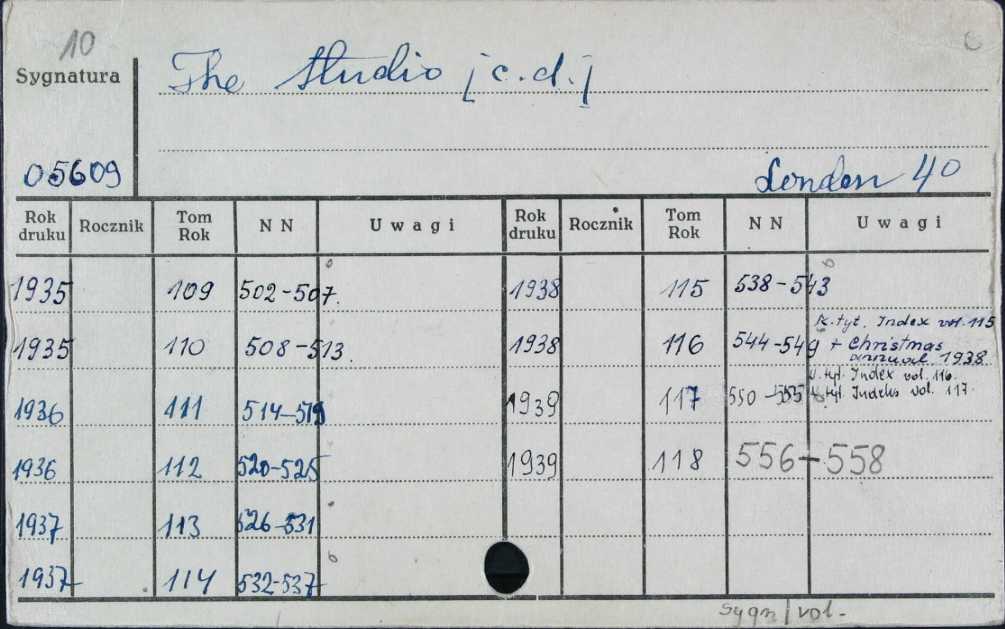 10
Sygnatura
The Studio [c.d.]
05609
London 40
Rok druku Rocznik Tom Rok NN Uwagi Rok druku Rocznik Tom Rok NN Uwagi
1935 109 502-507. 1938 115 538-543
k.tyt. Index vol. 115
1935 110 508-513. 1938 116 544-549 + Christmas
annual 1938
k.tyt. Index vol. 116.
1936 111 514-519 1939 117 550-555 k.tyt. Indeks vol. 117.
1936 112 520-525 1939 118 556-558
1937 113 526-531
1937 114 532-537
Sygn/vol.